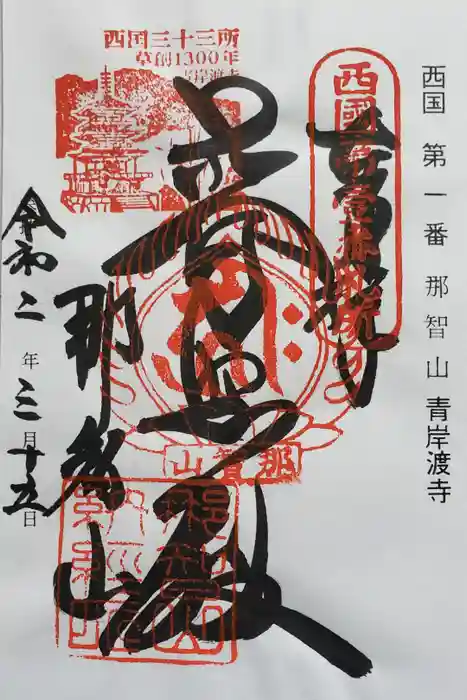 西国 第一番 那智山 青岸渡寺
西國第壹番札所
西国三十三所
草創1300年
青岸渡寺
普照殿
那智山
那智山
令和二年三月十五日